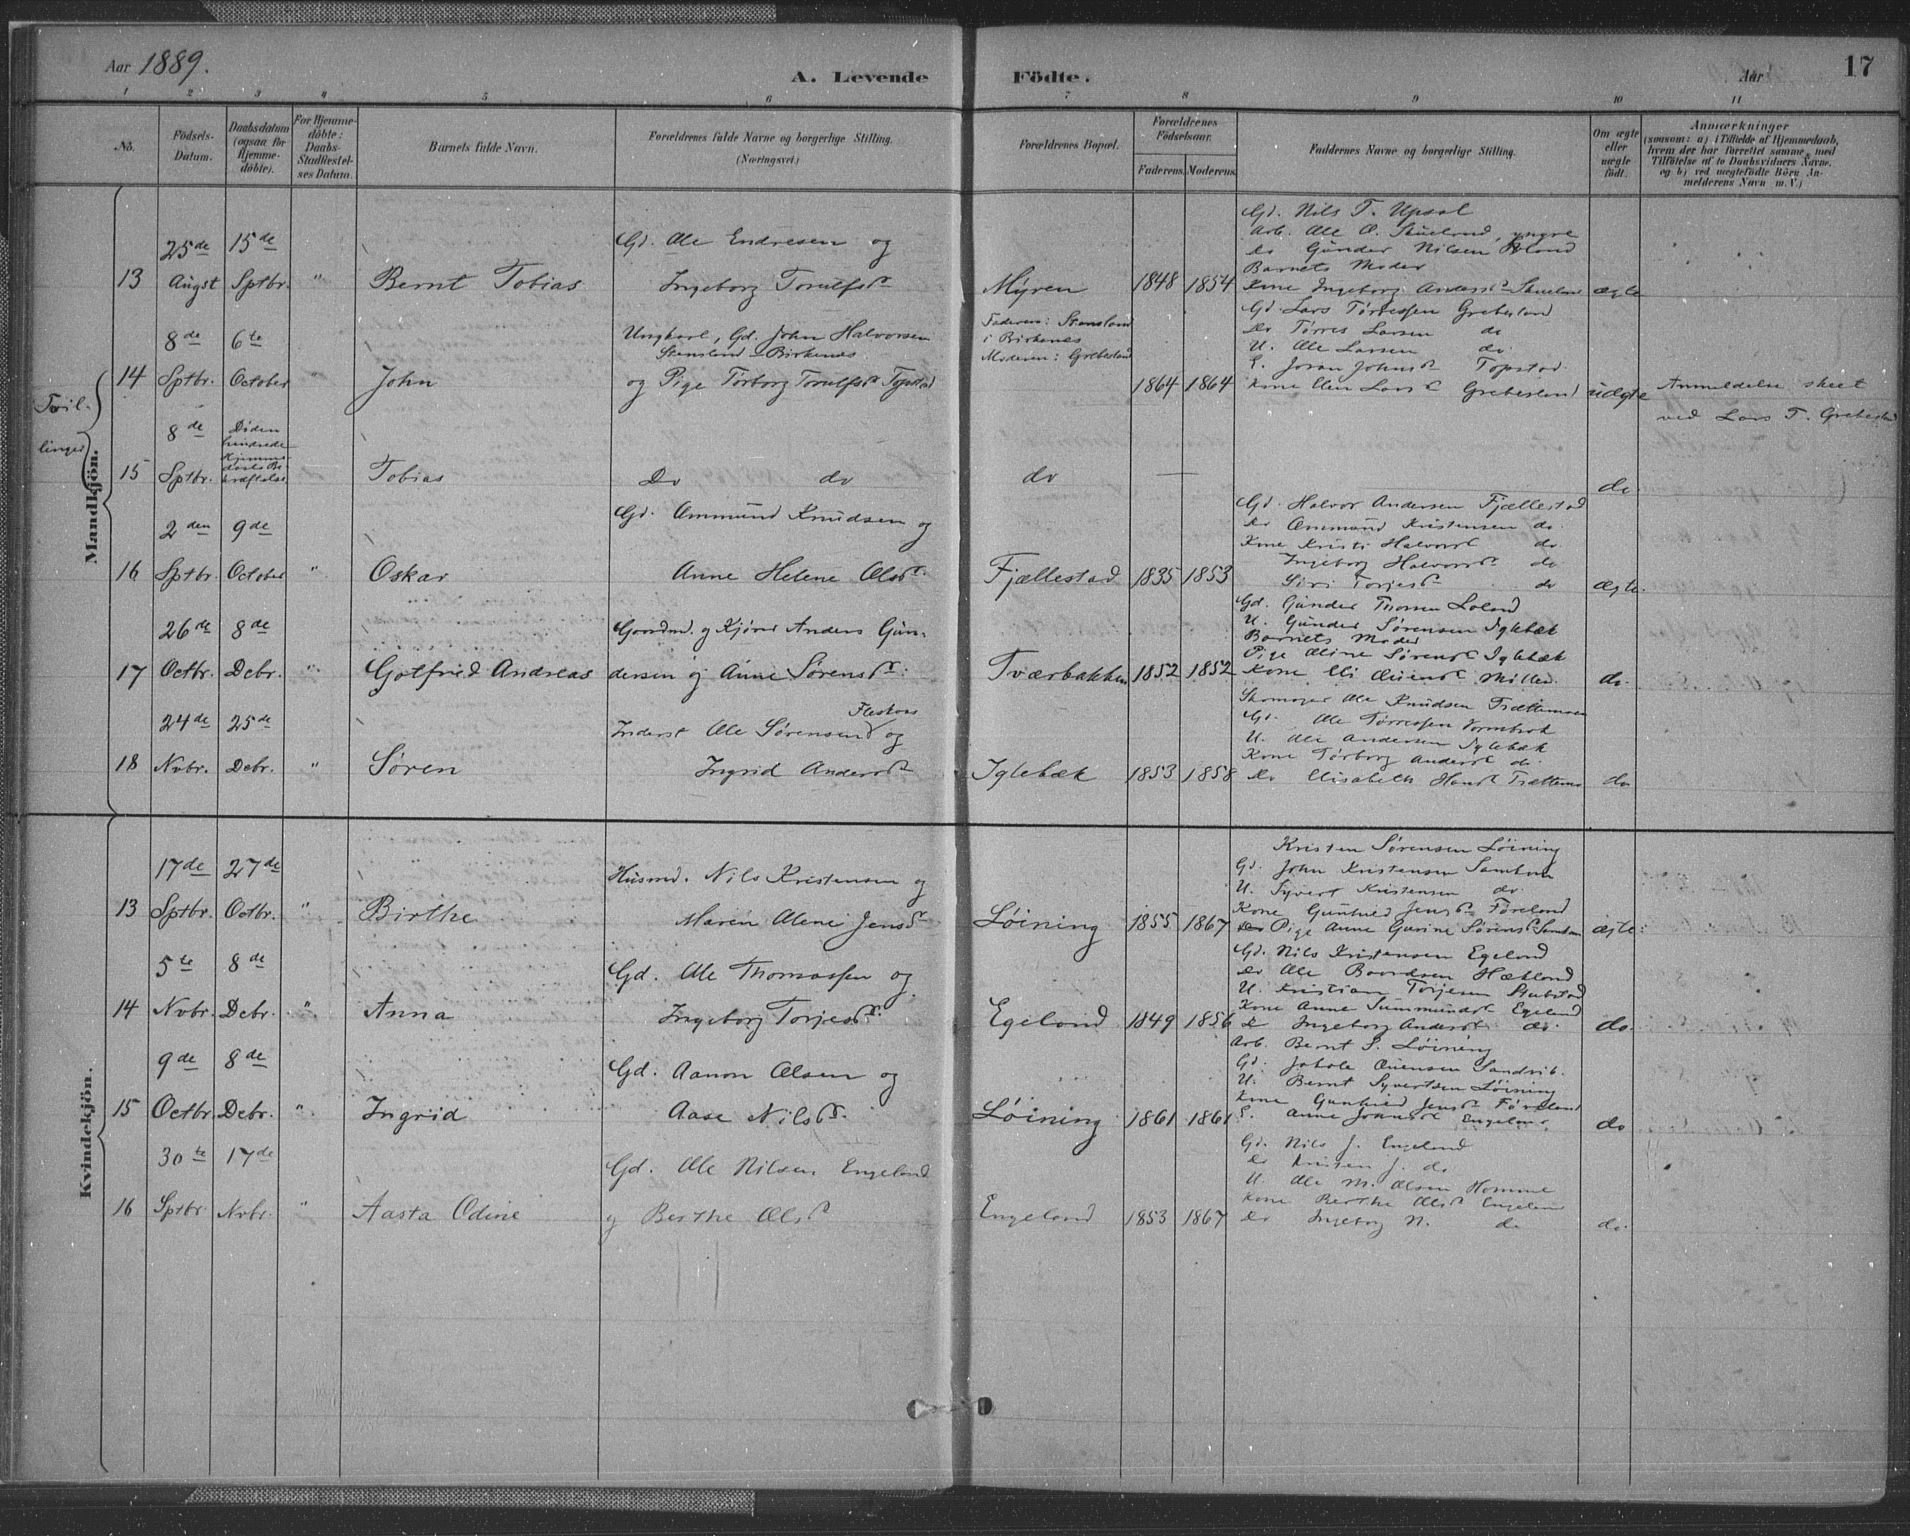 Aar 1889.
A. Levende Födte.
Aar
17
1 2 3 4 5 6 7 8 9 10 11
No.
Födsels-Datum.
Daabsdatum (ogsaa for Hjemme-döbte).
For Hjemme-döbte: Daabs-Stadfæstel-ses Datum.
Barnets fulde Navn.
Forældrenes fulde Navne og borgerlige Stilling. (Næringsvei.)
Forældrenes Bopæl.
Forældrenes Födselsaar.
Faderens. Moderens.
Faddernes Navne og borgerlige Stilling.
Om ægte eller uægte födt.
Anmærkninger
(saasom: a) i Tilfælde af Hjemmedaab, hvem der har forrettet samme, med Tilföielse af to Daabsvidners Navne, og b) ved uægtefödte Börn Anmelderens Navn m. V.)
Mandkjön.
13 25de Augst 15de Sptbr. " Bernt Tobias
Gd. Ole Endresen og
Ingeborg Torulfsd.
Myren 1848 1854
Gd. Nils T. Upsal
Arb. Ole O. Skueland, yngre
Do Gunder Nilsen
Barnets Moder
Kone Ingeborg Andersd. Skueland
ægte
Tvil-
linger
14 8de Sptbr. 6te October " John
Ungkarl, Gd. John Halvorsen
Stensland - Birkenes
og Pige Torborg Torulfsd. Topstad
Faderen: Stensland
i Birkenes
Moderen: Grebestad
1864 1864
Gd. Lars Tørressen Grebesland
Do Tørres Larsen do
U. Ole Larsen do.
E. Joran Johnsd. Topstad.
Kone Elen Larsd. Grebesland
uægte
Anmeldelse skeet
ved Lars T. Grebestad
15 8de Sptbr. Døden
hindrede
Hjemme-
daabs Be-
kræftelse
Tobias
Do do
do —
do.
16 2den Sptbr. 9de October " Oskar
Gd. Ommund Knudsen og
Anne Helene Olsd.
Fjællestad 1835 1853
Gd. Halvor Andersen Fjællestad
Do Ommund Kristensen do.
Kone Kristi Halvorsd. do.
Ingeborg Halvorsd. do
Siri Torjesd. do
ægte.
17 26de Octbr. 8de Debr. " Gotfried Andreas
Gaardmd. og Kjører Anders Gun-
dersen og Anne Sørensd.
Tværbakken 1852 1852
Gd. Gunder Thorsen Loland
U. Gunder Sørensen Iglebæk
Barnets Moder
Pige Oline Sørensd. Iglebæk
Kone Eli
do.
18 24de Nvbr. 25de Debr. " Søren
Inderst Ole Sørensen Fleskaas og
Ingrid Andersd.
Iglebæk 1853 1858
Skomager Ole Knudsen Trættemoen
Gd. Ole Tørressen
U. Ole Andersen Iglebæk
Kone Tørborg Andersd. do.
Do Elisabeth Hansd.
do
Kvindekjön.
13 17de Sptbr. 27de Octbr. " Birthe
Husmd. Nils Kristensen og
Maren Olene Jensd.
Løining 1855 1867
Kristen Sørensen Løining
Gd. John Kristensen
U. Syvert Kristensen do.
Kone Gunhild Jensd. Føreland
Pige Anne Gurine Sørensd.
ægte
14 5te Nvbr. 8de Debr. " Anna
Gd. Ole Thomassen og
Ingeborg Torjesd.
Egeland 1849 1856
Gd. Nils Kristensen Egeland
Do Ole Baardsen Hækland
U. Kristian Torjesen Stubstad
Kone Anne Summundsd. Egeland
E. Ingeborg Andersd. do.
do.
15 9de Octbr. 8de Debr. " Ingrid
Gd. Aanon Olsen og
Aase Nilsd.
Løining 1861 1861
Arb. Bernt S. Løining
Gd. Sandvik.
U. Bernt Syvertsen Løining
Kone Gunhild Jensd. Føreland
E. Anne Johnsd. Engeland
do
16 30te Sptbr. 17de Nvbr. " Aasta Odine
Gd. Ole Nilsen Engeland
og Berthe Olsd.
Engeland 1853 1867
Gd. Nils J. Engeland
Do Kristen J. do
U. Ole M. Olsen Homme
Kone Berthe Olsd. Engeland
Do Ingeborg N. do
do.